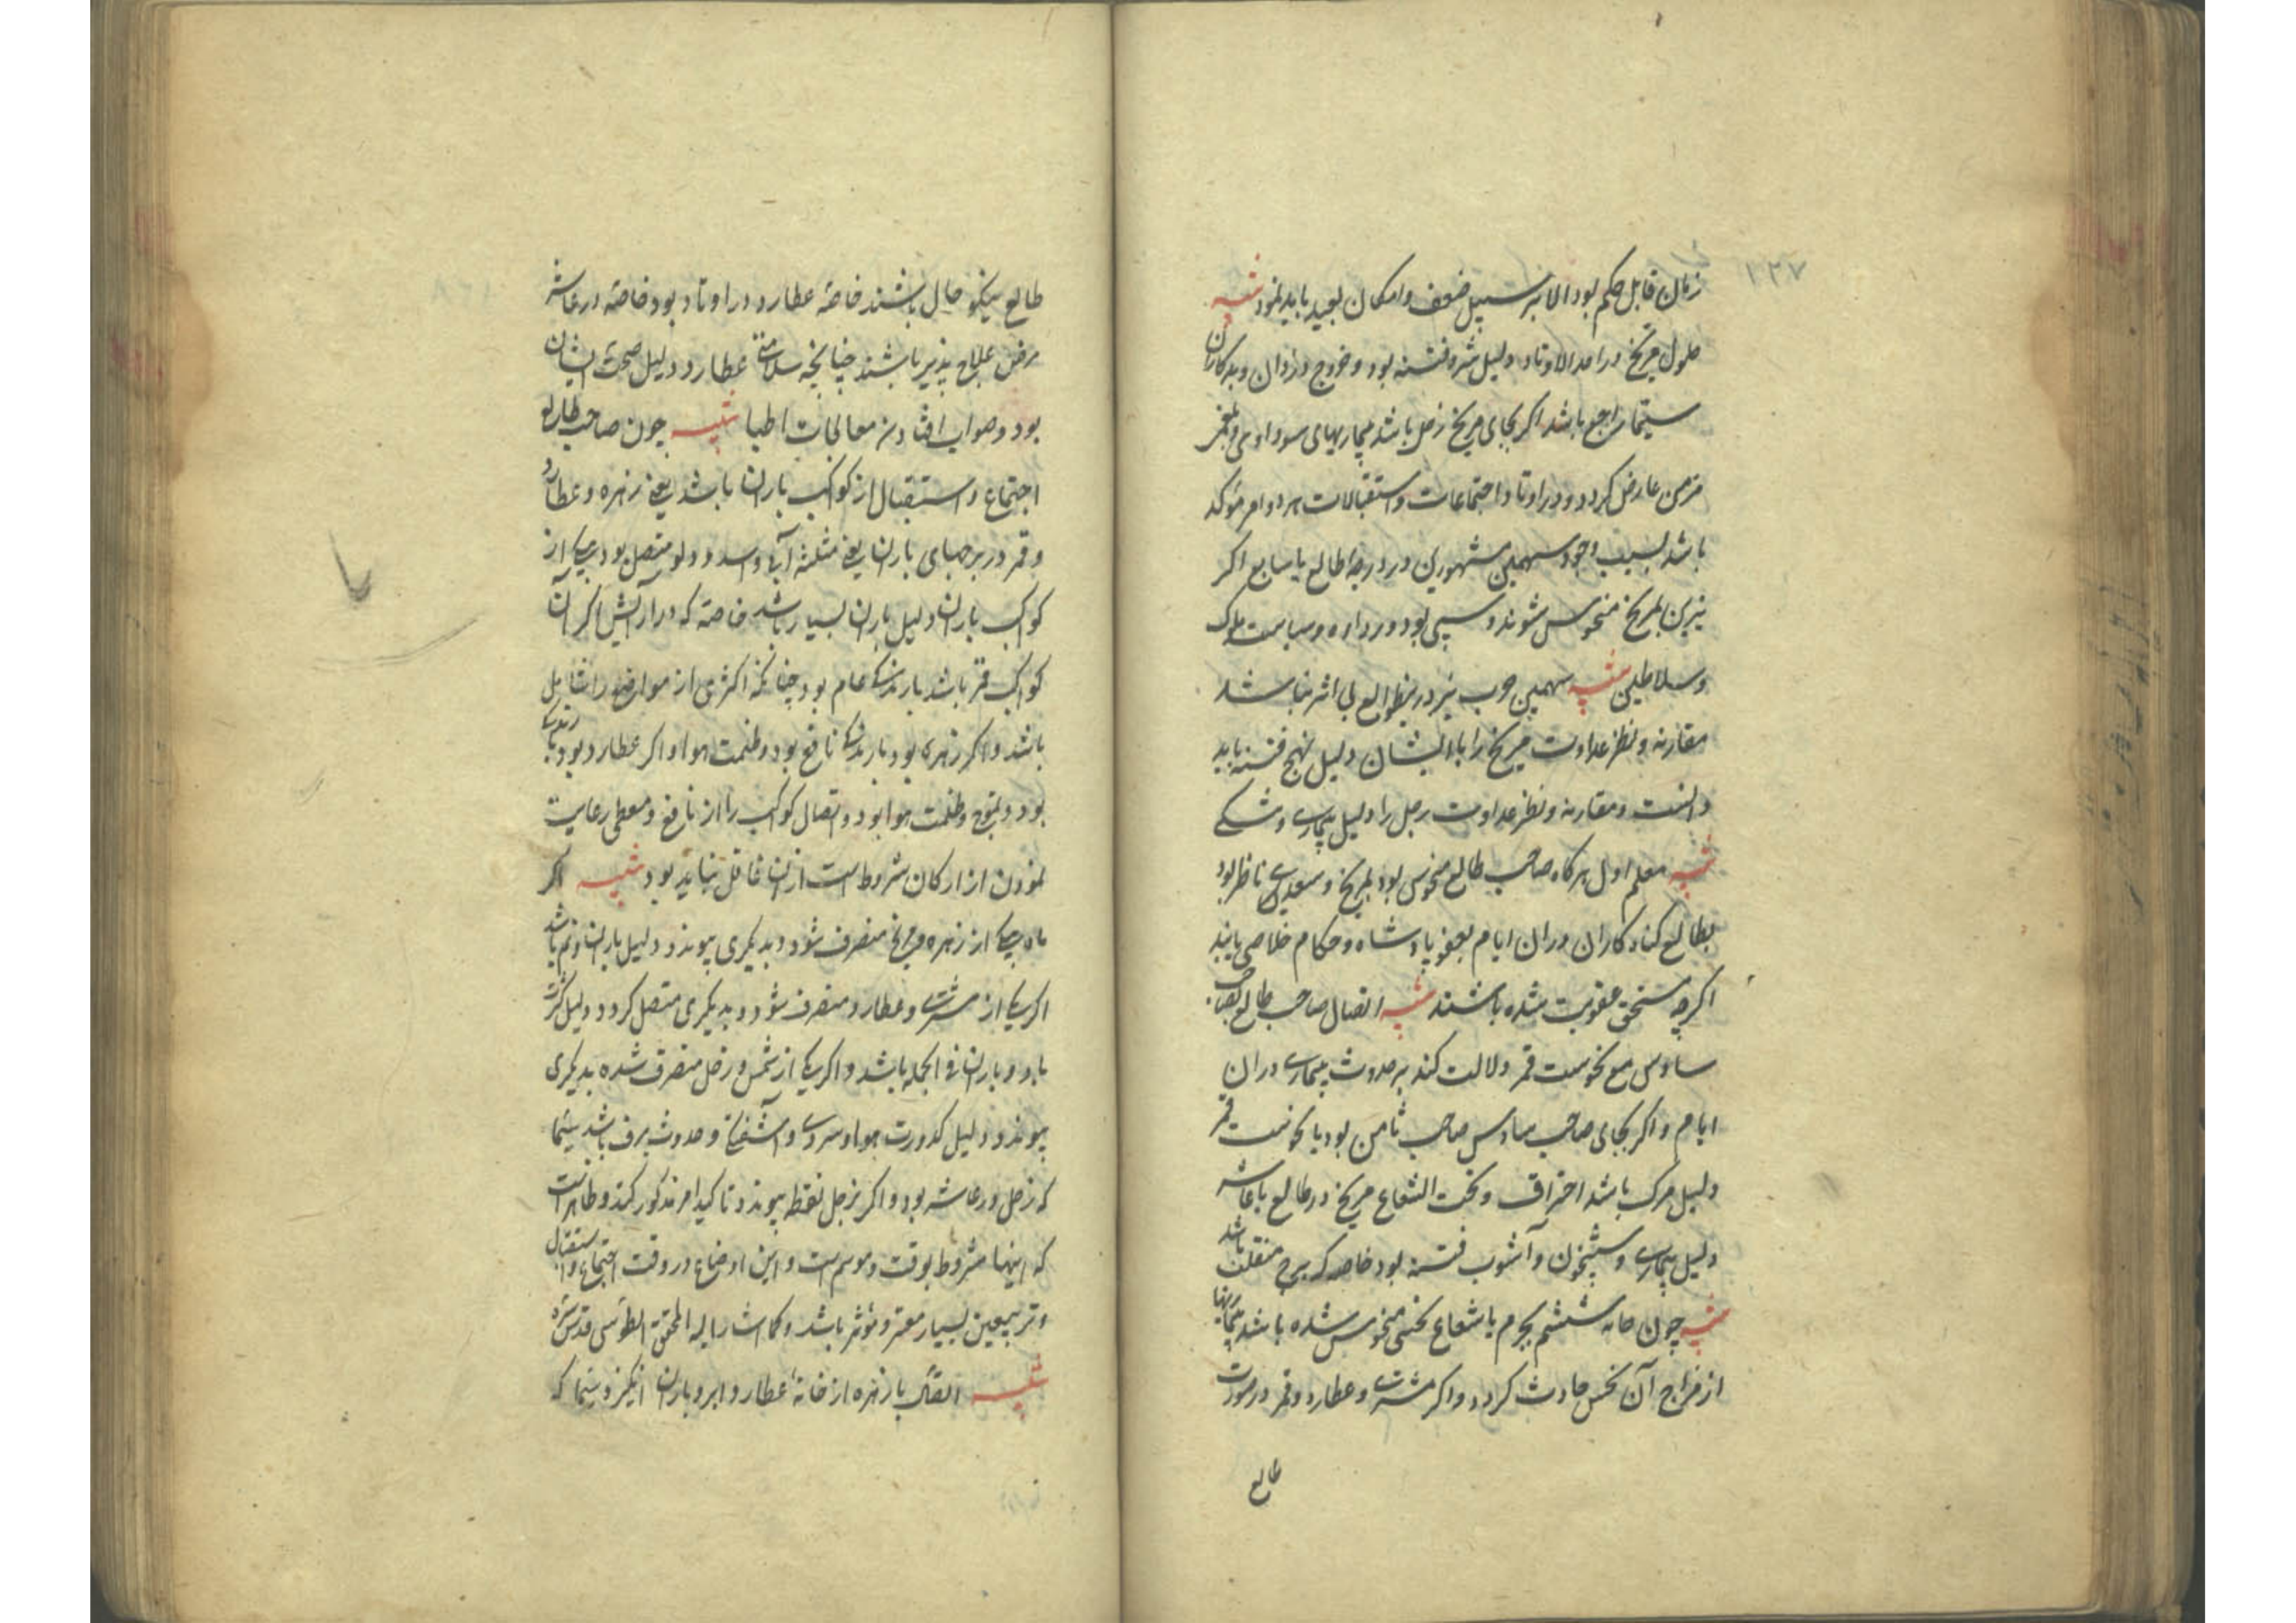 ۱۲۷
زمان قابل حکم بود الا بر سبیل ضعف و امکان بعید باید نمود تنبیه
حلول مریخ در احد الاوتاد دلیل شر و فتنه بود و خروج دزدان و بدکاران
سیما راجع باشد اگر بجای مریخ زحل باشد بیماریهای سوداوی و بلغمی
مزمن عارض گردد و در اوتاد اجتماعات و استقبالات هر دو امر مؤکد
باشد بسبب وجود سهمین مشهورین در درجه طالع یا سابع اگر
نیرین بمریخ منحوس شوند و سپی بود و سیاست ملوک
و سلاطین تنبیه سهمین حرب نیز درین طوالع بی اثر نباشد
مقارنه و نظر عداوت مریخ را با ایشان دلیل تهیج فتنه باید
دانست و مقارنه و نظر عداوت زحل را دلیل بیماری و
تنبیه معلم اول هرگاه صاحب طالع منحوس بود بمریخ و سعدی ناظر بود
بطالع گناه کاران در ان ایام بعفو پادشاه و حکام خلاصی یابند
اگرچه مستحق عقوبت شده باشند تنبیه اتصال صاحب طالع بصاحب
سادس مع نحوست قمر دلالت کند بر حدوث بیماری دران
ایام و اگر بجای صاحب سادس صاحب ثامن بود با نحوست قمر
دلیل مرگ باشد احتراق و تحت الشعاع مریخ در طالع یا عاشر
دلیل بیماری و شبیخون و آشوب فتنه بود خاصه که برج منقلب باشد
تنبیه چون خانه ششم بجرم یا شعاع نحسی منحوس شده باشد بیماریها
از مزاج آن نحس حادث گردد و اگر مشتری و عطارد و قمر درصورت
طالع
طالع نیکو حال باشند خاصة عطارد در اوتاد بود خاصه در عاشر
مرض علاج پذیر باشند چنانچه سلامتی عطارد دلیل صحت ایشان
بود و صواب افتادن معالجات اطبا تنبیه چون صاحب طالع
اجتماع و استقبال از کواکب باران باشد یعنی زهره و عطارد
و قمر در برجهای باران یعنی مثلثه آبی و اسد و دلو متصل بود بیکی از
کواکب باران دلیل باران بسیار باشد خاصه که در آن
کواکب قمر باشد بارندگی عام بود چنانکه اکثری از مواضع را شامل
باشد و اگر زهره بود بارندگی نافع بود و ظلمت هوا و اگر عطارد بود بارندگی
بود و ظلمت هوا بود و اتصال کواکب را از نافع و معطی رعایت
نمودن از ارکان شروط است ازان غافل نباید بود تنبیه اگر
ماه بیکی از زهره و مریخ منصرف شود و بدیگری پیوندد دلیل باران و نم باشد
اگر یکی از مشتری و عطارد منصرف شود و بدیگری متصل گردد دلیل کثرت
باد و باران فی الجمله باشد و اگر یکی از شمس و زحل منصرف شده بدیگری
پیوندد دلیل کدورت هوا و سردی و آشفتگی و حدوث برف باشد سیما
که زحل در عاشر بود و اگر بزحل فقط پیوندد تاکید امر مذکور کند و ظاهر است
که اینها مشروط بوقت و موسم است و این اوضاع در وقت اجتماع و استقبال
و تربیعین بسیار معتبر و مؤثر باشد و کما اشار الیه المحقق الطوسی قدس سره
تنبیه اتصال با زهره از خانهٔ عطارد ابر و باران انگیزد سیما که